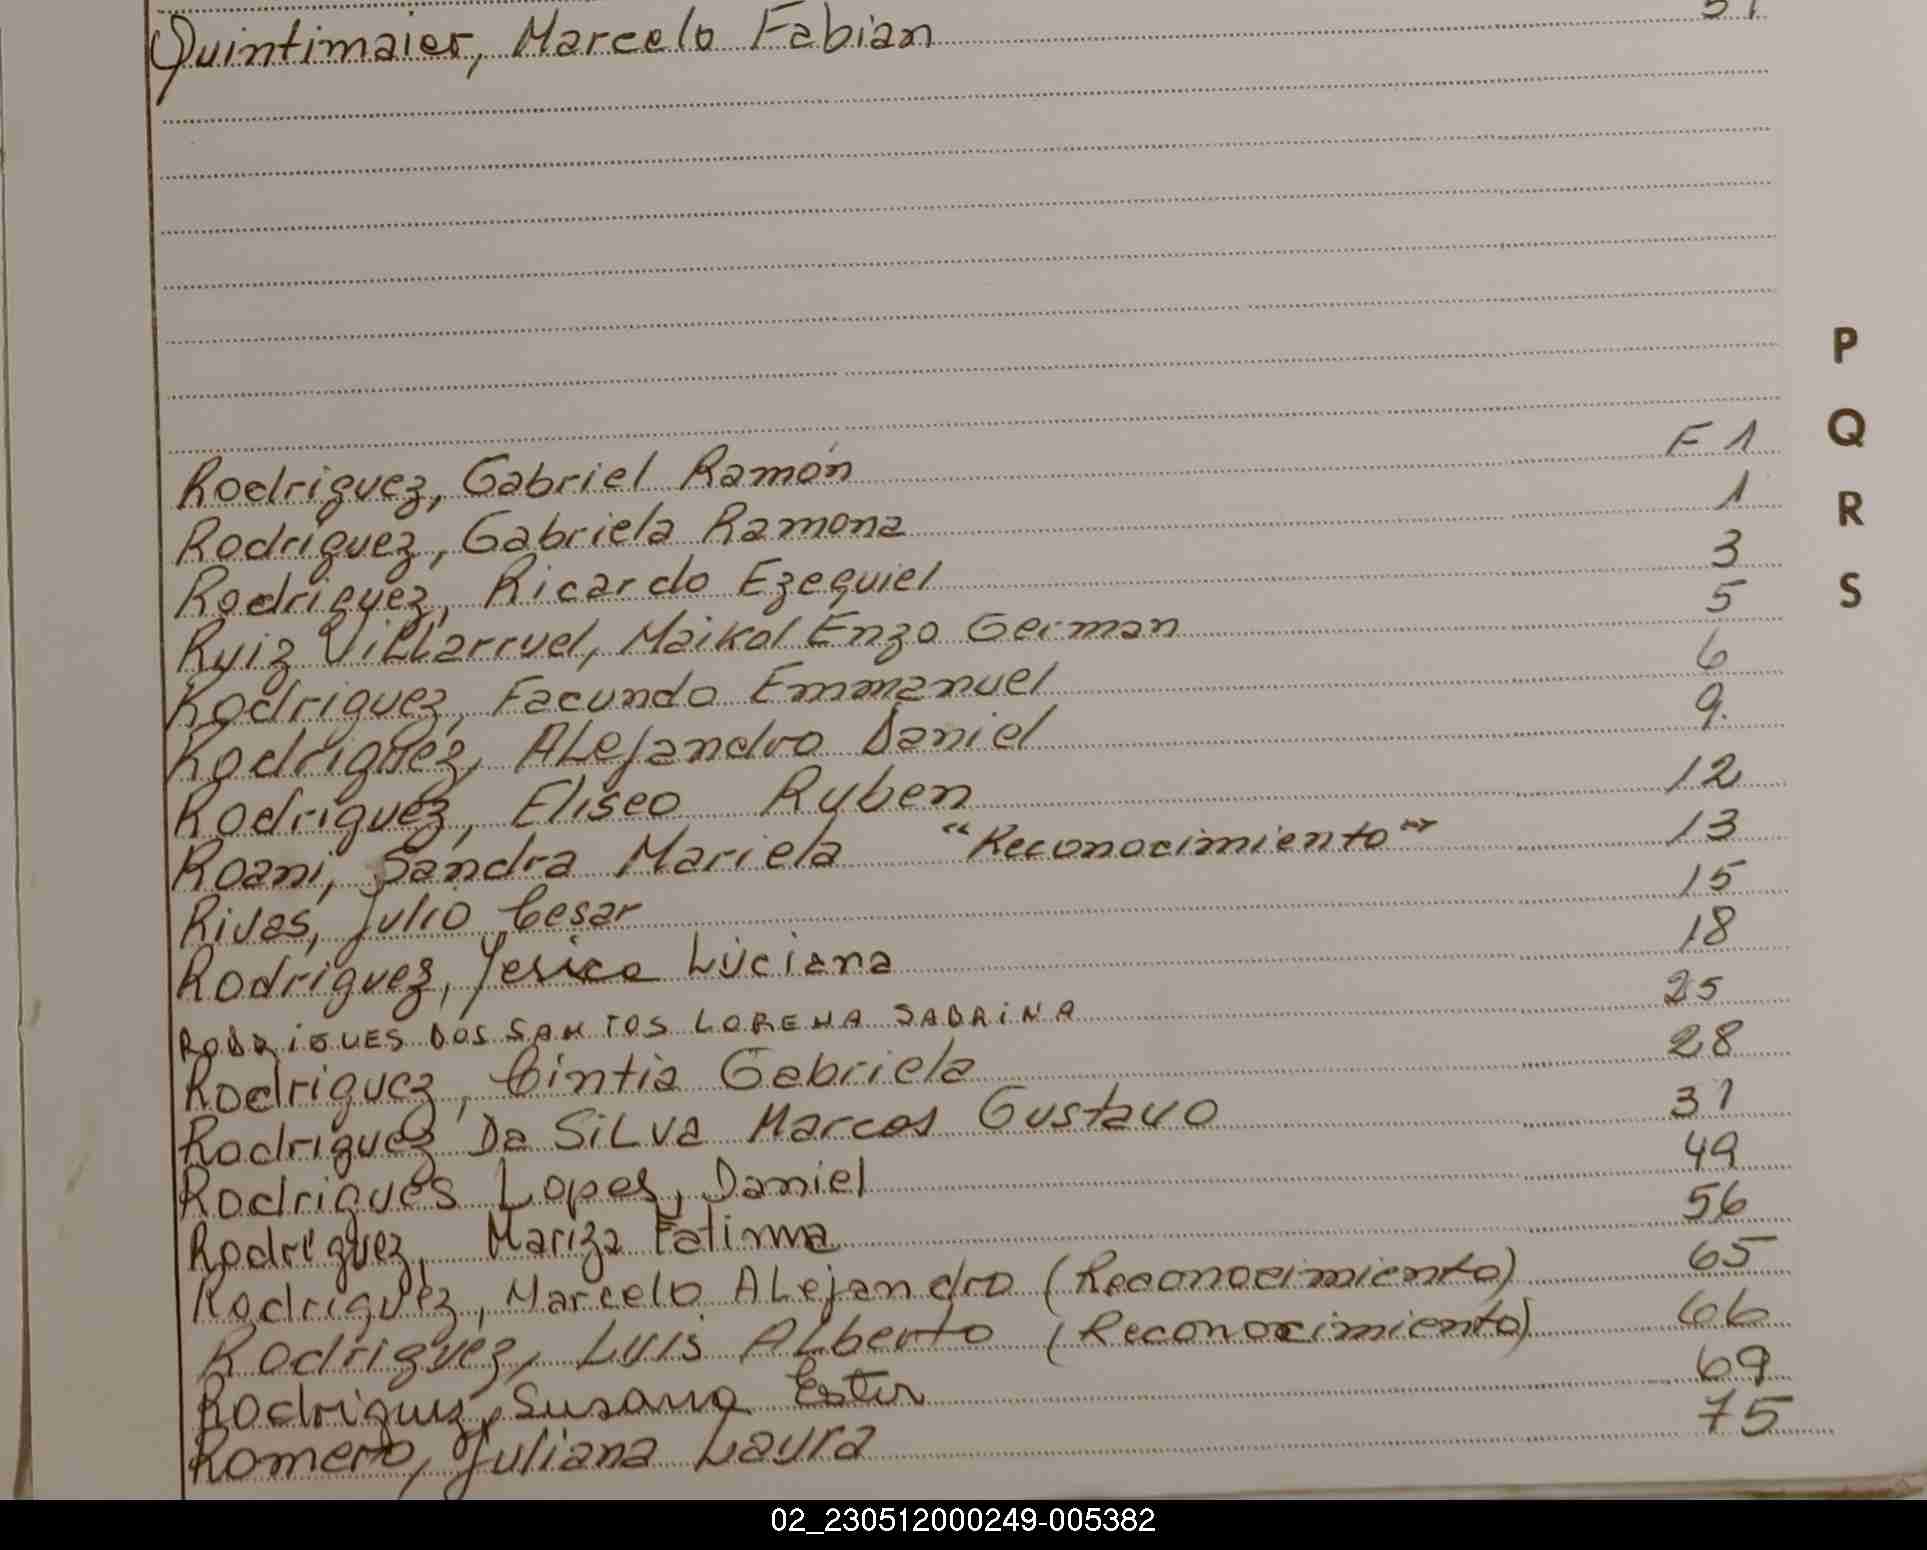 Quintimaier, Marcelo Fabian
Rodriguez, Gabriel Ramón F 1
Rodriguez, Gabriela Ramona 1
Rodriguez, Ricardo Ezequiel 3
Ruiz Villarruel, Maikol Enzo German 5
Rodriguez, Facundo Emmanuel 6
Rodriguez, Alejandro Daniel 9
Rodriguez, Eliseo Ruben 12
Roani, Sandra Mariela "Reconocimiento" 13
Rivas, Julio Cesar 15
Rodriguez, Yesica Luciana 18
RODRIGUES DOS SANTOS LORENA SABRINA 25
Rodriguez, Cintia Gabriela 28
Rodriguez Da Silva Marcos Gustavo 31
Rodrigues Lopes, Daniel 49
Rodriguez, Mariza Fatima 56
Rodriguez, Marcelo Alejandro (Reconocimiento) 65
Rodriguez, Luis Alberto (Reconocimiento) 66
Rodriguez, Susana Ester 69
Romero, Juliana Laura 75
P
Q
R
S
02_230512000249-005382